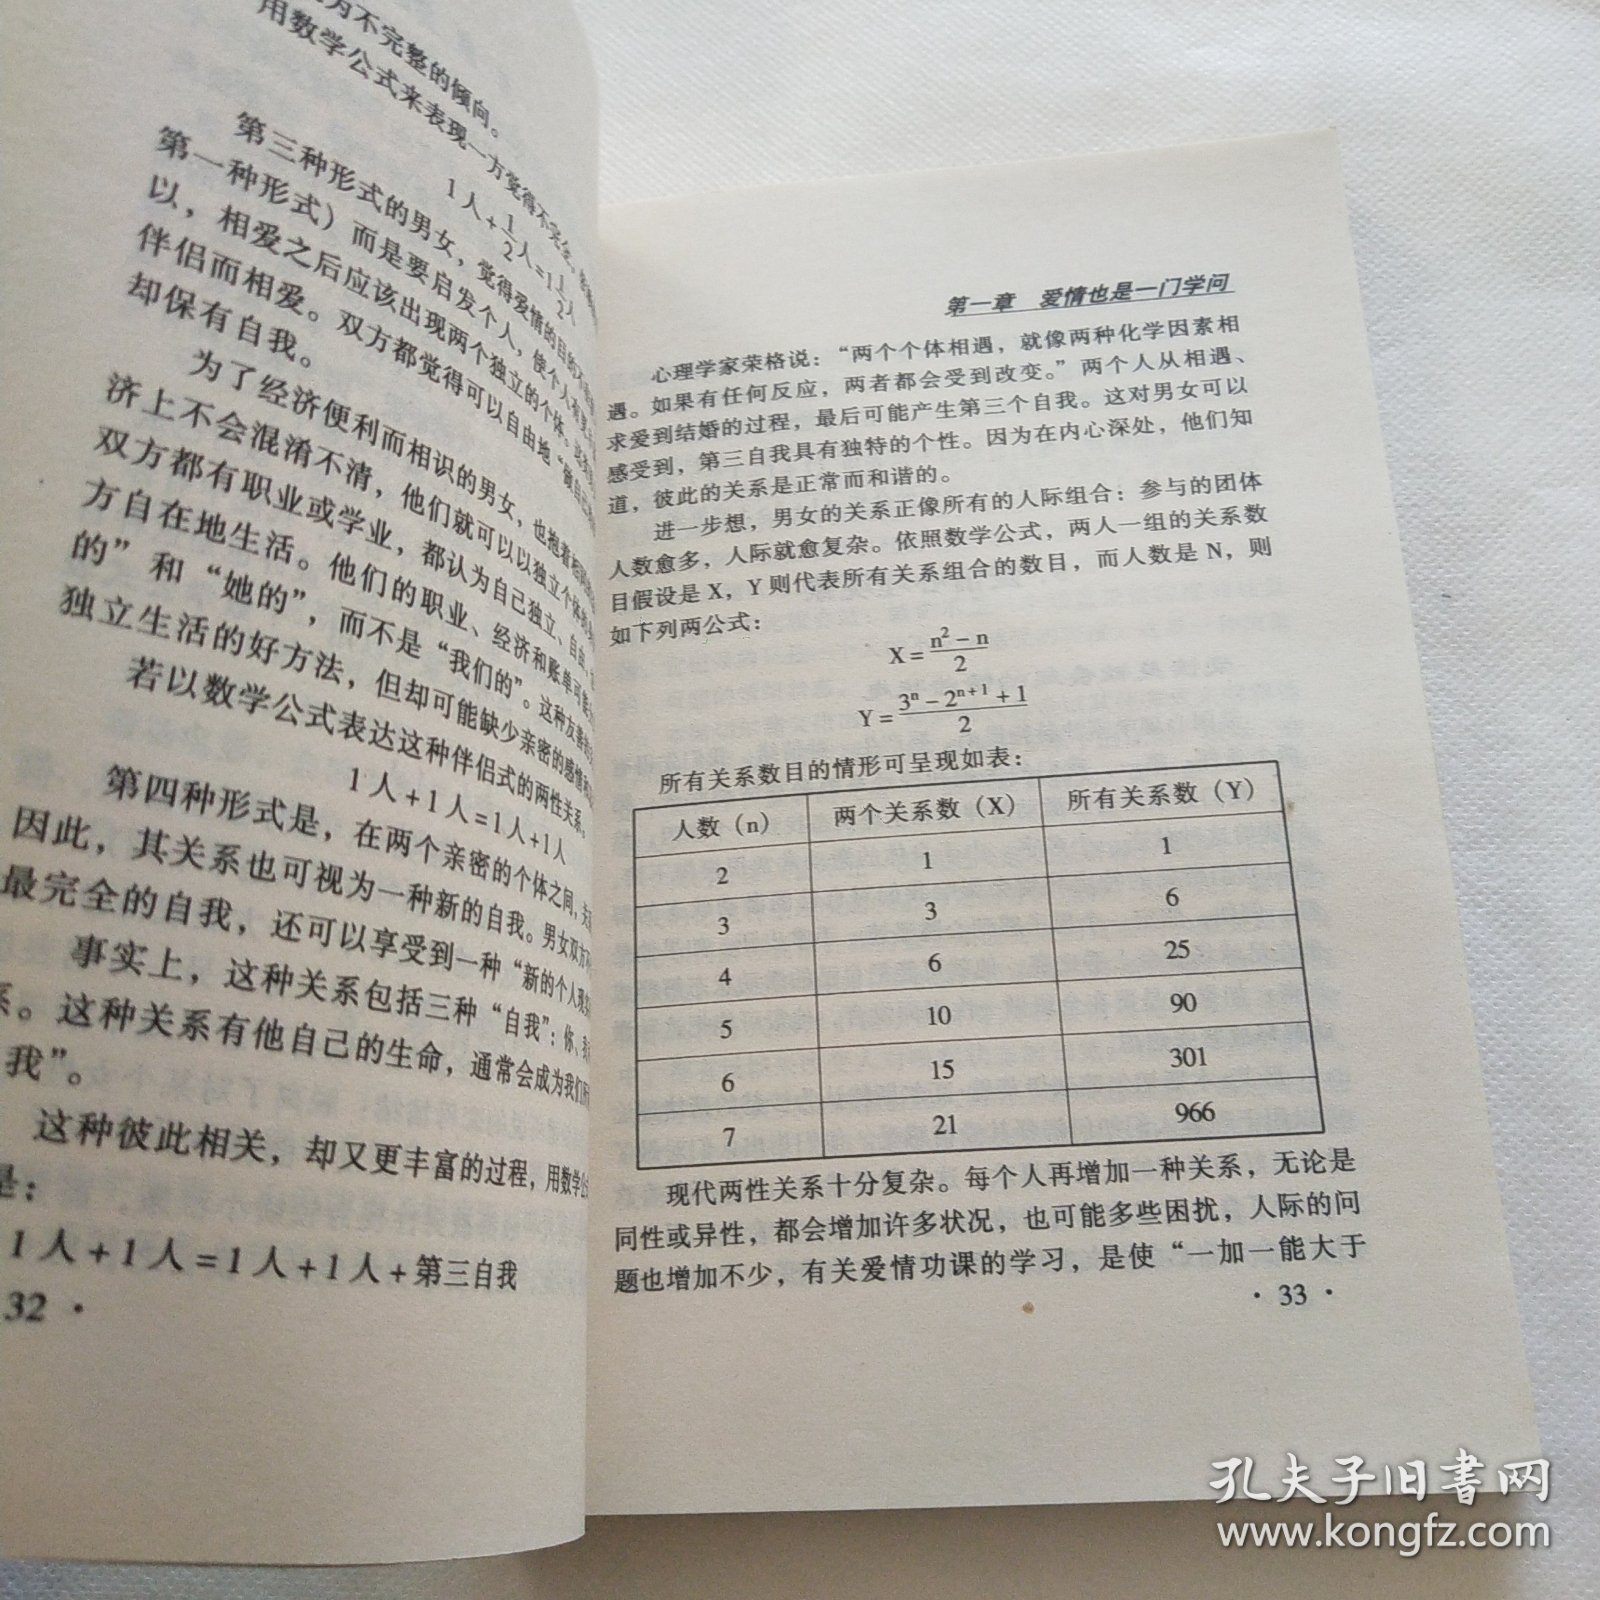 为不完整的倾向。
用数学公式来表现一方觉得不完全，
1人+1/2人=1 1/2人
第三种形式的男女，觉得爱情的目的不是
第一种形式）而是要启发个人，使个人有更
以，相爱之后应该出现两个独立的个体。
伴侣而相爱。双方都觉得可以自由地“做自己
却保有自我。
为了经济便利而相识的男女，也抱着相同的
济上不会混淆不清，他们就可以以独立个体的
双方都有职业或学业，都认为自己独立、自由、
方自在地生活。他们的职业、经济和账单可能分
的”和“她的”，而不是“我们的”。这种友善的
独立生活的好方法，但却可能缺少亲密的感情和
若以数学公式表达这种伴侣式的两性关系，
1人+1人=1人+1人
第四种形式是，在两个亲密的个体之间，
因此，其关系也可视为一种新的自我。男女双方不
最完全的自我，还可以享受到一种“新的个人现实
事实上，这种关系包括三种“自我”：你、我
系。这种关系有他自己的生命，通常会成为我们所
我”。
这种彼此相关，却又更丰富的过程，用数学公
是：
1人+1人=1人+1人+第三自我
32 ·
第一章 爱情也是一门学问
心理学家荣格说：“两个个体相遇，就像两种化学因素相
遇。如果有任何反应，两者都会受到改变。”两个人从相遇、
求爱到结婚的过程，最后可能产生第三个自我。这对男女可以
感受到，第三自我具有独特的个性。因为在内心深处，他们知
道，彼此的关系是正常而和谐的。
进一步想，男女的关系正像所有的人际组合：参与的团体
人数愈多，人际就愈复杂。依照数学公式，两人一组的关系数
目假设是 X，Y 则代表所有关系组合的数目，而人数是 N，则
如下列两公式：
X=(n²-n)/2
Y=(3ⁿ-2ⁿ⁺¹+1)/2
所有关系数目的情形可呈现如表：
人数（n） 两个关系数（X） 所有关系数（Y）
2 1 1
3 3 6
4 6 25
5 10 90
6 15 301
7 21 966
现代两性关系十分复杂。每个人再增加一种关系，无论是
同性或异性，都会增加许多状况，也可能多些困扰，人际的问
题也增加不少，有关爱情功课的学习，是使“一加一能大于
· 33 ·
孔夫子旧书网
www.kongfz.com